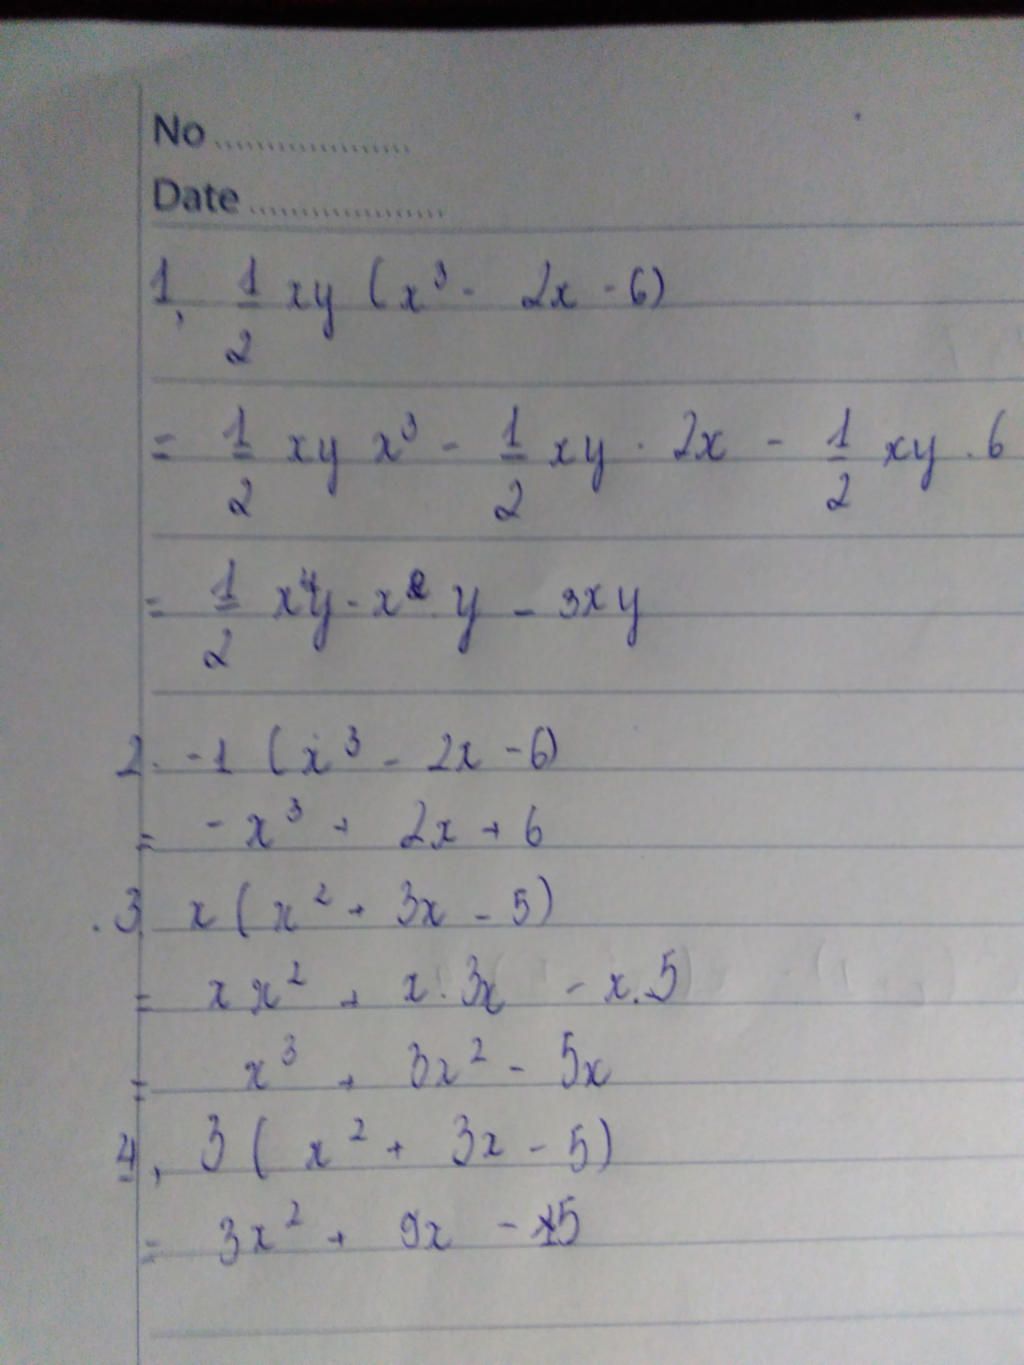 No ..................
Date ..................
1, 1/2 xy (x³ - 2x - 6)
= 1/2 xy x³ - 1/2 xy . 2x - 1/2 xy . 6
= 1/2 x⁴y - x² y - 3xy
2. -1 (x³ - 2x - 6)
= - x³ + 2x + 6
.3, x (x² + 3x - 5)
= x x² + x . 3x - x . 5
= x³ + 3x² - 5x
4, 3 ( x² + 3x - 5)
= 3x² + 9x - 15